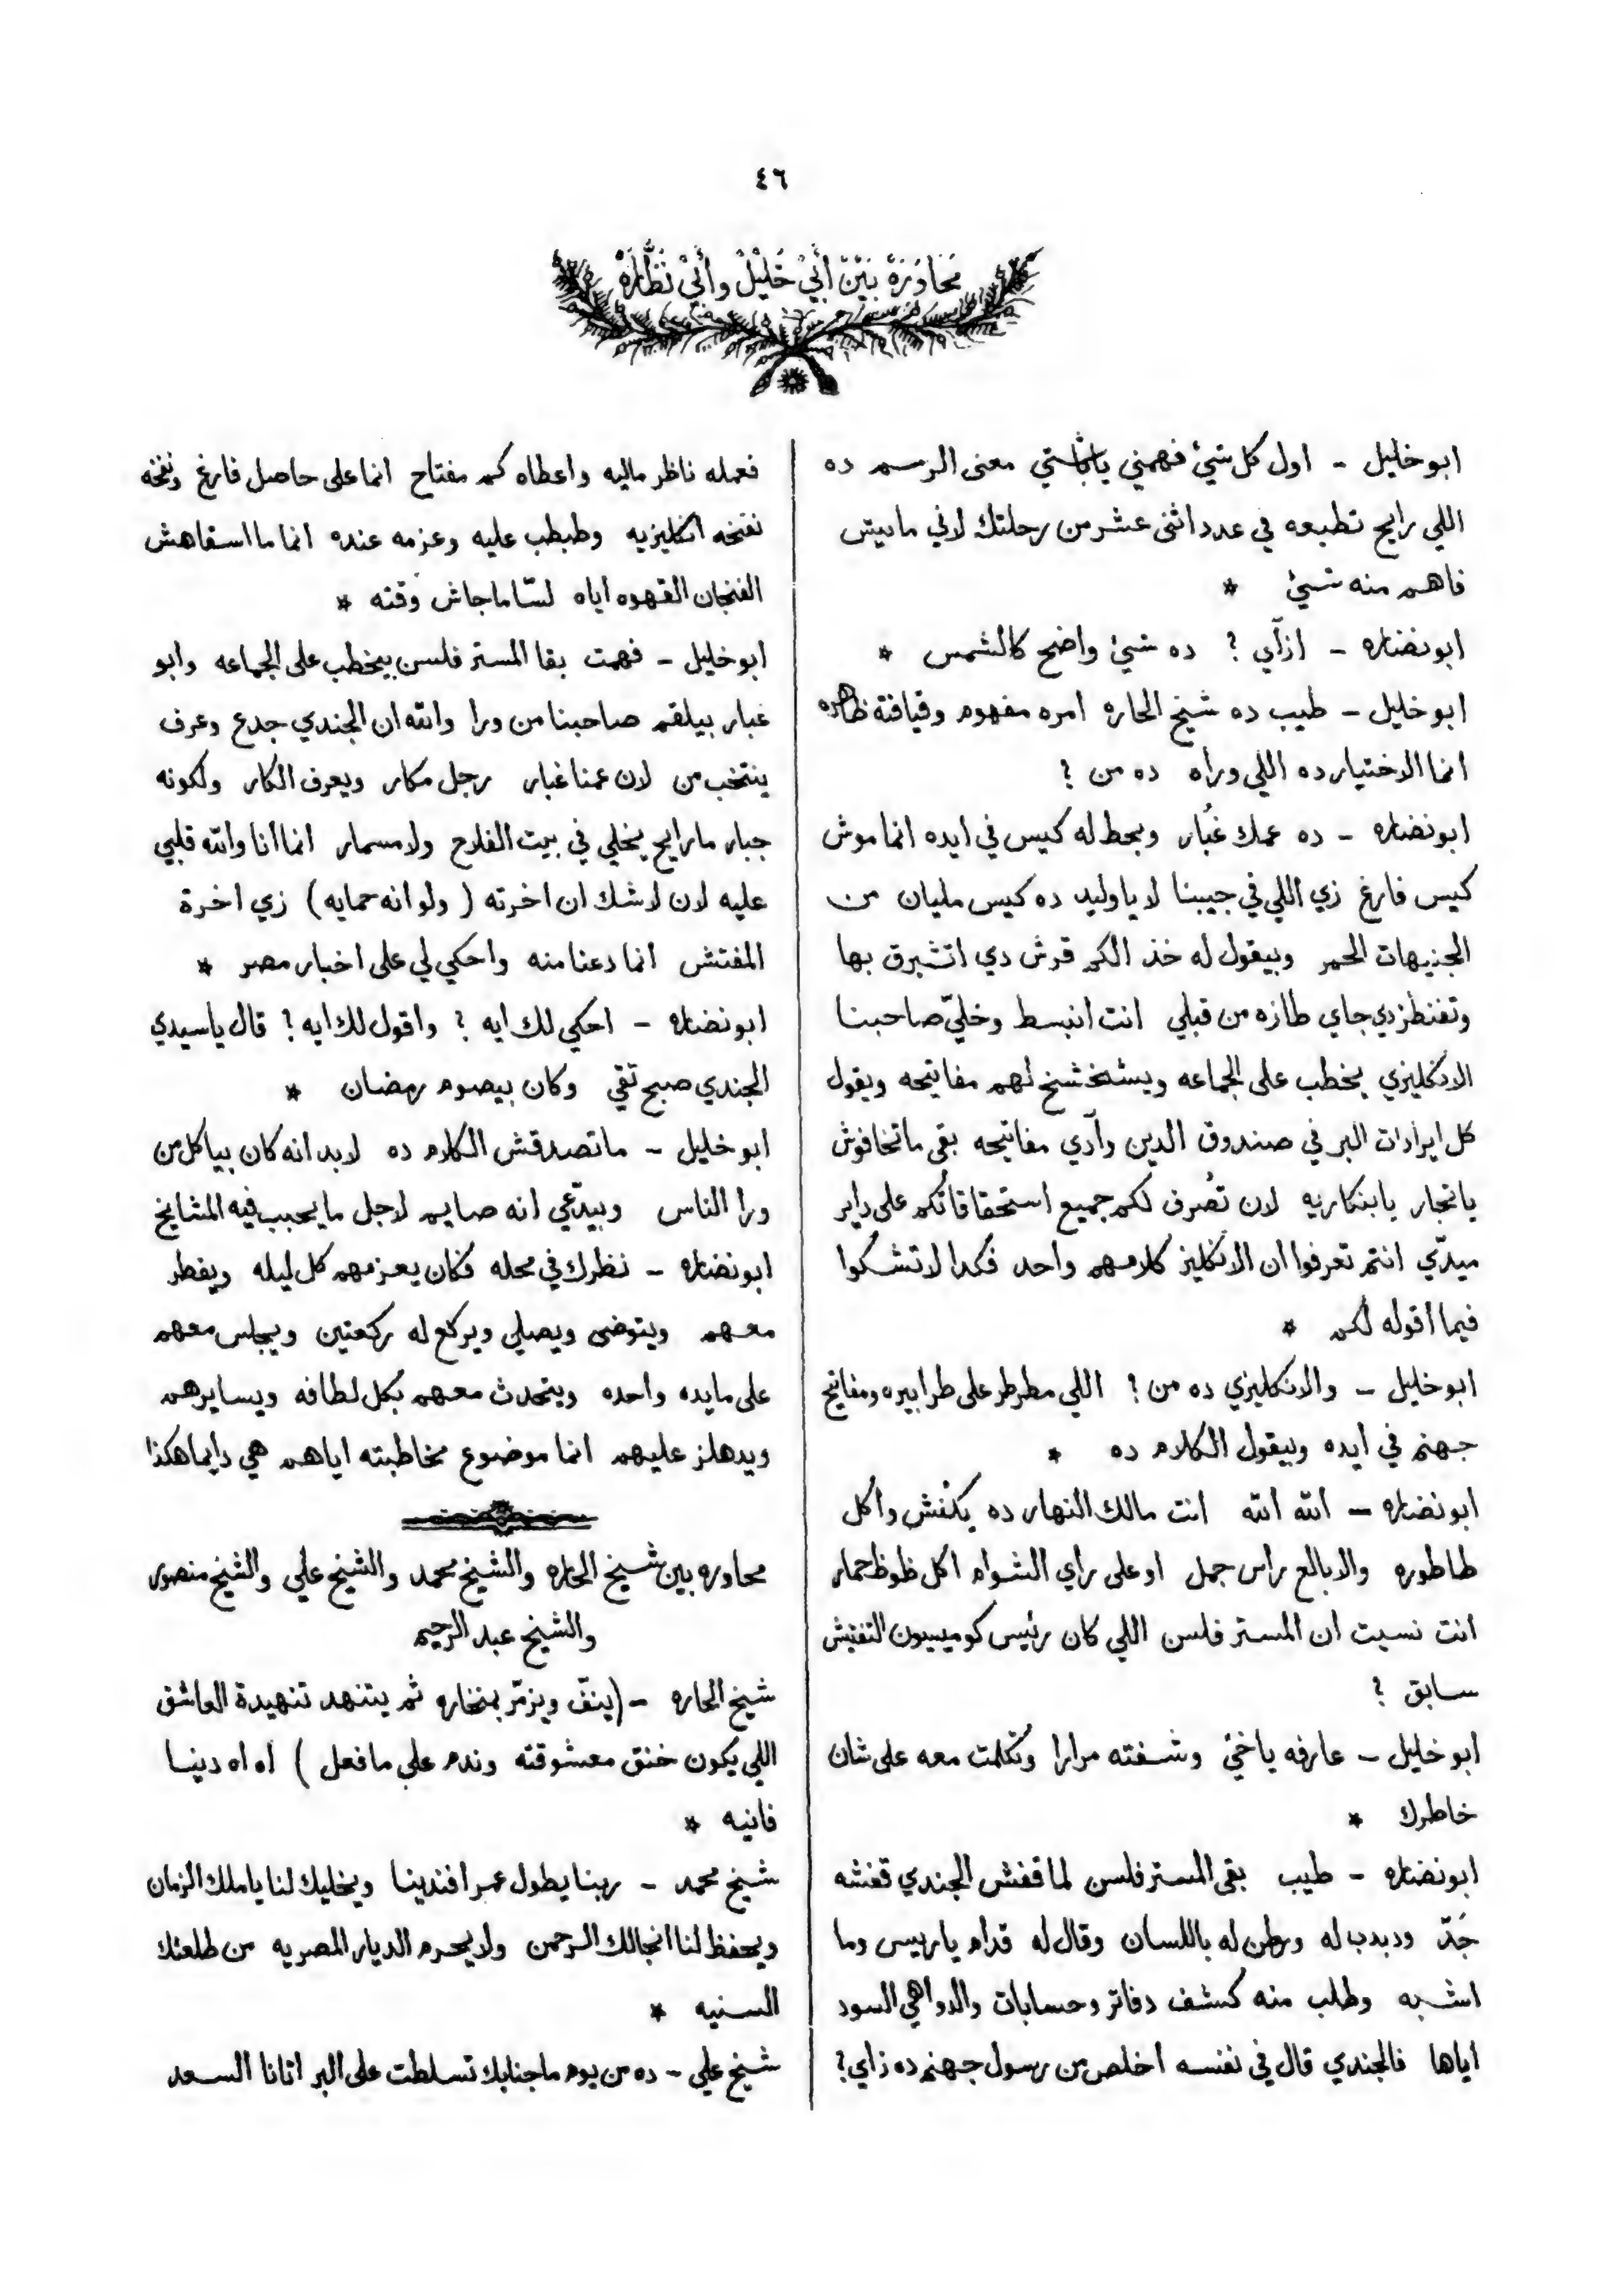 ٤٦
مَحَاوَرَةْ بَيْنْ أَبِيْ خَلِيْلْ وأَبِيْ نَظَّارَهْ
ابو خليل - اول كل شئ فهمني معنى الرسم ده
اللي رايح تطبعه في عدد اثنى عشر من رحلتك لاني مانيتش
فاهم منه شئ *
ابو نضاره - ازآي ؟ ده شئ واضح كالشمس *
ابو خليل - طيب ده شيخ الحاره امره مفهوم وقيافة ظاهره
انما الاختيار ده اللي وراه ده من ؟
ابو نضاره - ده عمك غُبار وبحط له كيس في ايده انما موش
كيس فارغ زي اللي في جيبنا لا يا وليد ده كيس مليان من
الجنيهات الحمر وبيقول له خذ الكم قرش دي اتشبرق بها
وتفنطز دي جاي طازه من قبلي انت انبسط وخليّ صاحبنا
الانكليزي يخطب على الجماعه ويشخشخ لهم مفاتيحه ويقول
كل ايرادات البر في صندوق الدين وآدي مفاتيحه بقى ماتخافوش
يا تجار يا بنكاريه لان تصُرف لكم جميع استحقاقاتكم على داير
ميدّي انتم تعرفوا ان الانكليز كلامهم واحد فكدا لا تشكوا
فيما أقوله لكم *
ابو خليل - والانكليزي ده من ؟ اللي مطرطر على طرابيره ومفاتيح
جهنم في ايده وبيقول الكلام ده *
ابو نضاره - الله الله انت مالك النهار ده يكنش واكل
طاطوره والا بالع راس جمل او على راي الشوام اكل ظوظ حمار
انت نسيت ان المستر فلسن اللي كان رئيس كوميسيون التفتيش
سابق ؟
ابو خليل - عارفه ياخئ وشفته مرارا وتكلمت معه على شان
خاطرك *
ابو نضاره - طيب بقى المستر فلسن لما قفش الجندي قفشه
جَدّ ودبدب له ورطن له باللسان وقال له قدام يا ريس وما
اشبه وطلب منه كشف دفاتر وحسابات والدواهي السود
اياها فالجندي قال في نفسه اخلص من رسول جهنم ده زاي؟
فعمله ناظر ماليه واعطاه كم مفتاح انما على حاصل فارغ ونفخه
نفخه انكليزيه وطبطب عليه وعزمه عنده انما ما اسقاهش
الفنجان القهوه اياه لسّا ماجاش وقته *
ابو خليل - فهمت بقا المستر فلسن بيخطب على الجماعه وابو
غبار بيلقم صاحبنا من ورا والله ان الجندي جدع وعرف
ينتخب من لان عمنا غبار رجل مكار ويعرف الكار ولكونه
جبار ما رايح يخلي في بيت الفلاح ولا مسمار انما انا والله قلبي
عليه لان لا شك ان اخرته ( ولو انه حمايه ) زي اخرة
المفتش انما دعنا منه واحكي لي على اخبار مصر *
ابو نضاره - احكي لك ايه ؟ واقول لك ايه ؟ قال يا سيدي
الجندي صبح تقي وكان بيصوم رمضان *
ابو خليل - ما تصدقش الكلام ده لابد انه كان بياكل من
ورا الناس وبيدّعي انه صايم لاجل ما يحبب فيه المشايخ
ابو نضاره - نظرك في محله فكان يعزمهم كل ليله ويفطر
معهم ويتوضى ويصلي ويركع له ركعتين ويجلس معهم
على مايده واحده ويتحدث معهم بكل لطافه ويسايرهم
ويدهلز عليهم انما موضوع مخاطبته اياهم هي دايما هكذا
محاوره بين شيخ الحاره والشيخ محمد والشيخ علي والشيخ منصور
والشيخ عبد الرحيم
شيخ الحاره - (ينفّ ويزمّر بمنخاره ثم يتنهد تنهيدة العاشق
اللي يكون خنق معشوقته وندم على ما فعل ) اه اه دينا
فانيه *
شيخ محمد - ربنا يطول عمر افندينا ويخليك لنا يا ملك الزمان
ويحفظ لنا انجالك الرحمن ولا يحرم الديار المصريه من طلعتك
السنيه *
شيخ علي - ده من يوم ما جنابك تسلطت على البر اتانا السعد